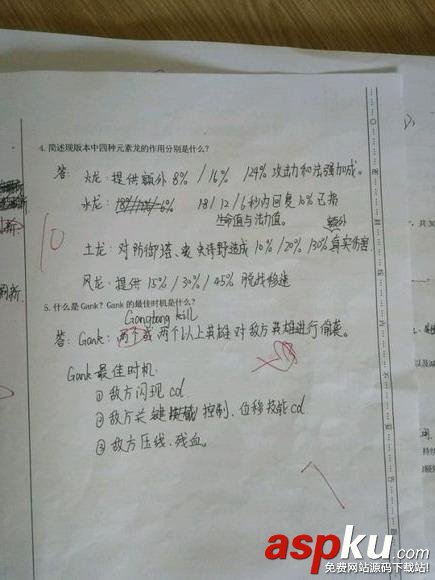 4. 简述现版本中四种元素龙的作用分别是什么?
答: 火龙: 提供额外 8% / 16% / 24% 攻击力和法强加成。
水龙: 18 / 12 / 6 秒内回复 10% 已损
生命值与法力值。 额外
土龙: 对防御塔、史诗野怪造成 10% / 20% / 30% 真实伤害
10
风龙: 提供 15% / 30% / 45% 脱战移速
5. 什么是 Gank? Gank 的最佳时机是什么?
Gangbang kill
答: Gank: 两个或两个以上英雄对敌方英雄进行偷袭。
Gank 最佳时机
① 敌方闪现 cd
② 敌方关键 控制、位移技能 cd
③ 敌方压线、残血。
7
刷新
aspku.com
免费网站源码下载站!